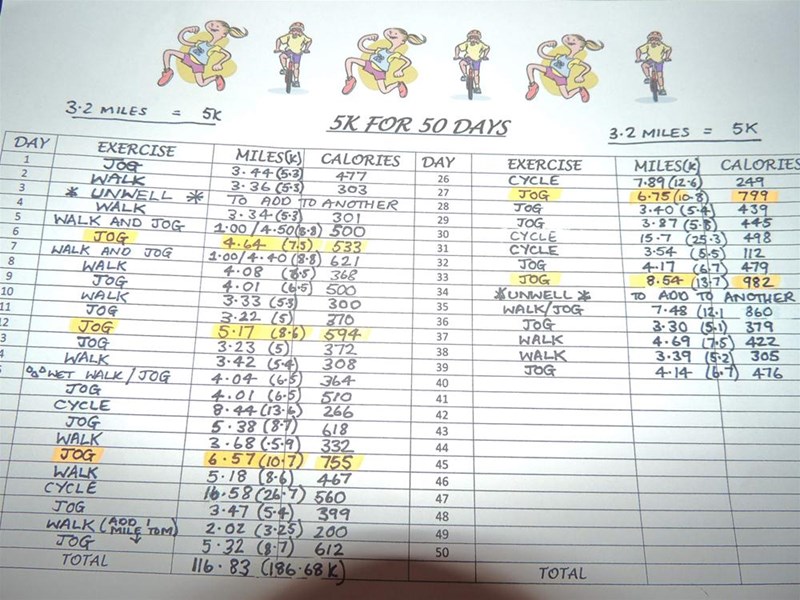 3.2 MILES = 5K
5K FOR 50 DAYS
3.2 MILES = 5K
DAY EXERCISE MILES(K) CALORIES
1 JOG 3.44 (5.3) 477
2 WALK 3.36 (5.3) 303
3 * UNWELL * TO ADD TO ANOTHER
4 WALK 3.34 (5.3) 301
5 WALK AND JOG 1.00/4.50(8.8) 500
6 JOG 4.64 (7.5) 533
7 WALK AND JOG 1.00/4.40 (8.8) 621
8 WALK 4.08 (6.5) 368
9 JOG 4.01 (6.5) 500
10 WALK 3.33 (5.3) 300
11 JOG 3.22 (5) 370
12 JOG 5.17 (8.6) 594
3 JOG 3.23 (5) 372
4 WALK 3.42 (5.4) 308
WET WALK/JOG 4.04 (6.5) 364
JOG 4.01 (6.5) 510
CYCLE 8.44 (13.6) 266
JOG 5.38 (8.7) 618
WALK 3.68 (5.9) 332
JOG 6.57 (10.7) 755
WALK 5.18 (8.6) 467
CYCLE 16.58 (26.7) 560
JOG 3.47 (5.4) 399
WALK (ADD 1 MILE TOM) 2.02 (3.25) 200
JOG 5.32 (8.7) 612
TOTAL 116.83 (186.68K)
DAY EXERCISE MILES(K) CALORIES
26 CYCLE 7.89 (12.6) 249
27 JOG 6.75 (10.8) 799
28 JOG 3.40 (5.4) 439
29 JOG 3.87 (5.8) 445
30 CYCLE 15.7 (25.3) 498
31 CYCLE 3.54 (5.5) 112
32 JOG 4.17 (6.7) 479
33 JOG 8.54 (13.7) 982
34 *UNWELL* TO ADD TO ANOTHER
35 WALK/JOG 7.48 (12.1 860
36 JOG 3.30 (5.1) 379
37 WALK 4.69 (7.5) 422
38 WALK 3.39 (5.2) 305
39 JOG 4.14 (6.7) 476
40
41
42
43
44
45
46
47
48
49
50
TOTAL